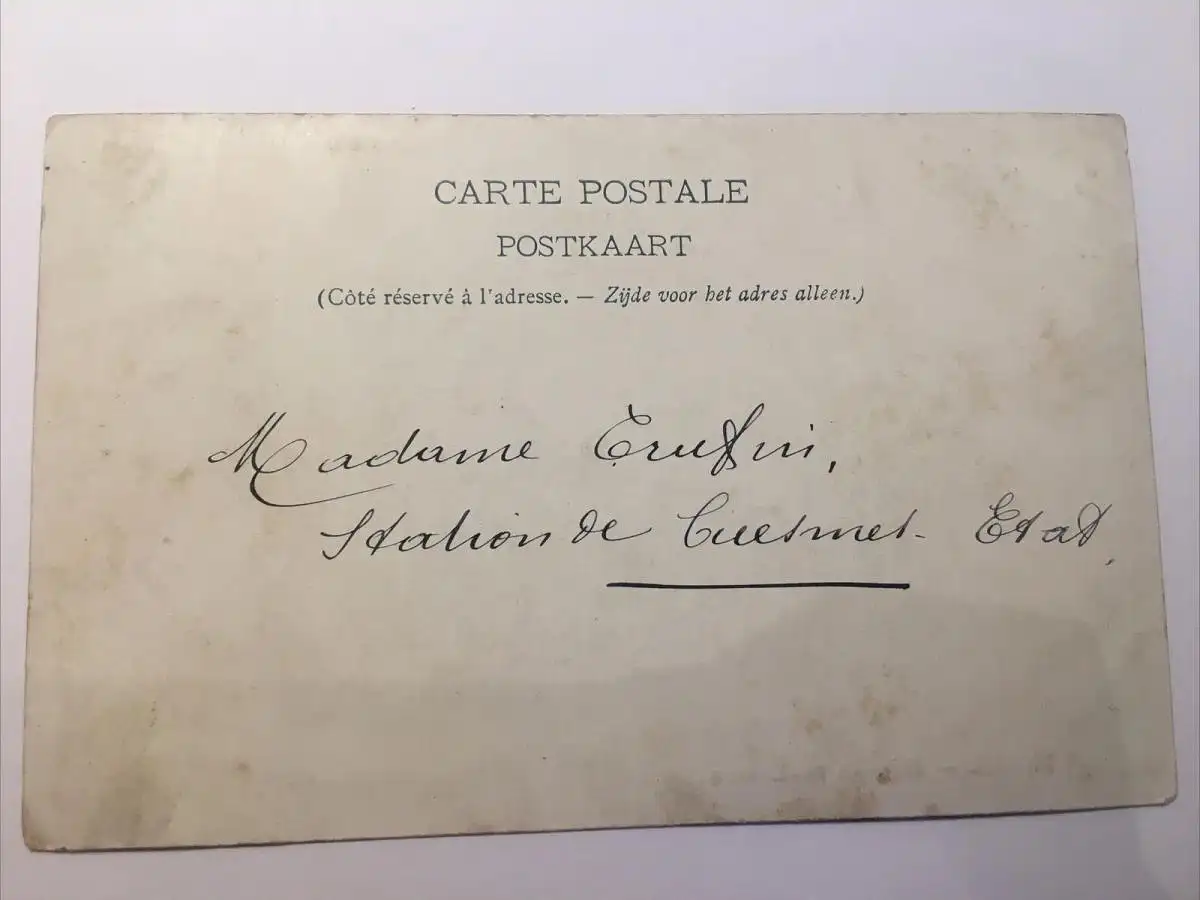 CARTE POSTALE
POSTKAART
(Côté réservé à l'adresse. — Zijde voor het adres alleen.)
Madame
Station de Cuesmes - Etat